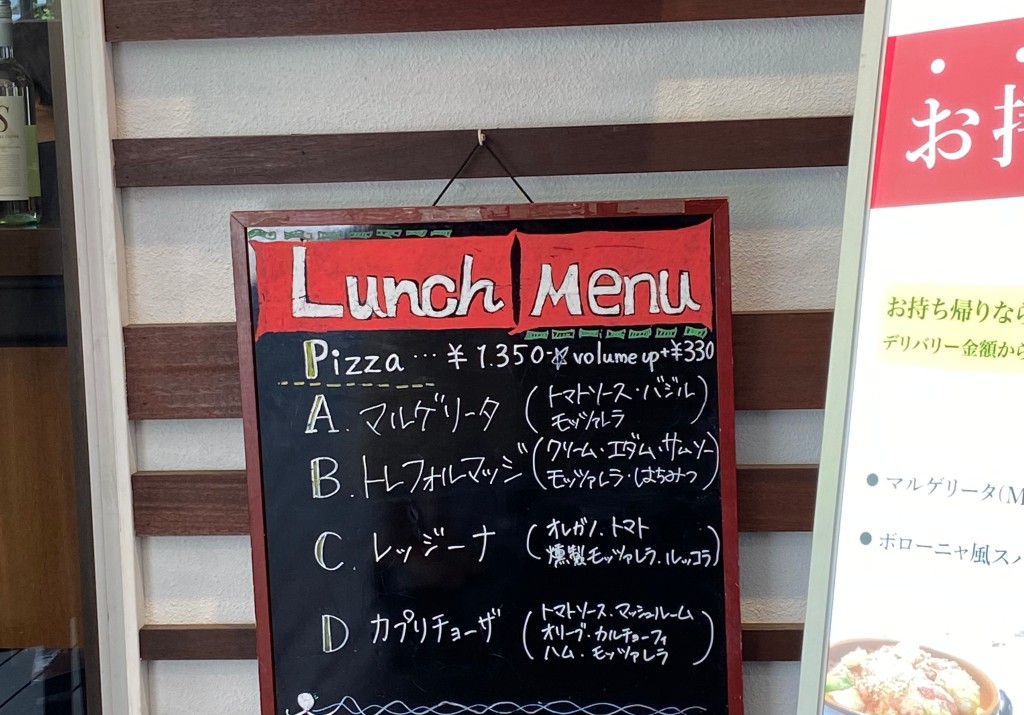 Lunch Menu
Pizza … ¥1.350- ☆ volume up +¥330
A. マルゲリータ (トマトソース・バジル
モッツァレラ)
B. トレフォルマッジ (クリーム・エダム・サムソー
モッツァレラ・はちみつ)
C. レッジーナ (オレガノ.トマト
燻製モッツァレラ.ルッコラ)
D カプリチョーザ (トマトソース.マッシュルーム
オリーブ・カルチョーフィ
ハム・モッツァレラ)
お持
お持ち帰りなら
デリバリー金額から
• マルゲリータ(M
• ボローニャ風スパ
S